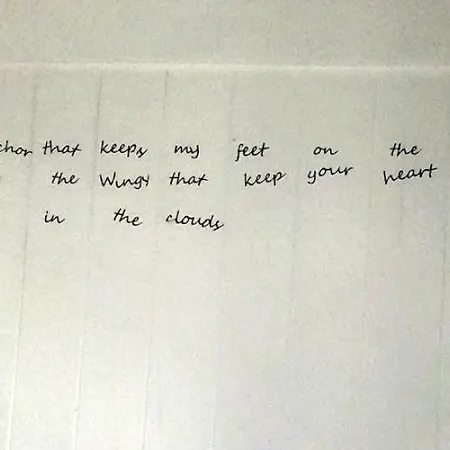 chor that keeps my feet on the
the wings that keep your heart
in the clouds